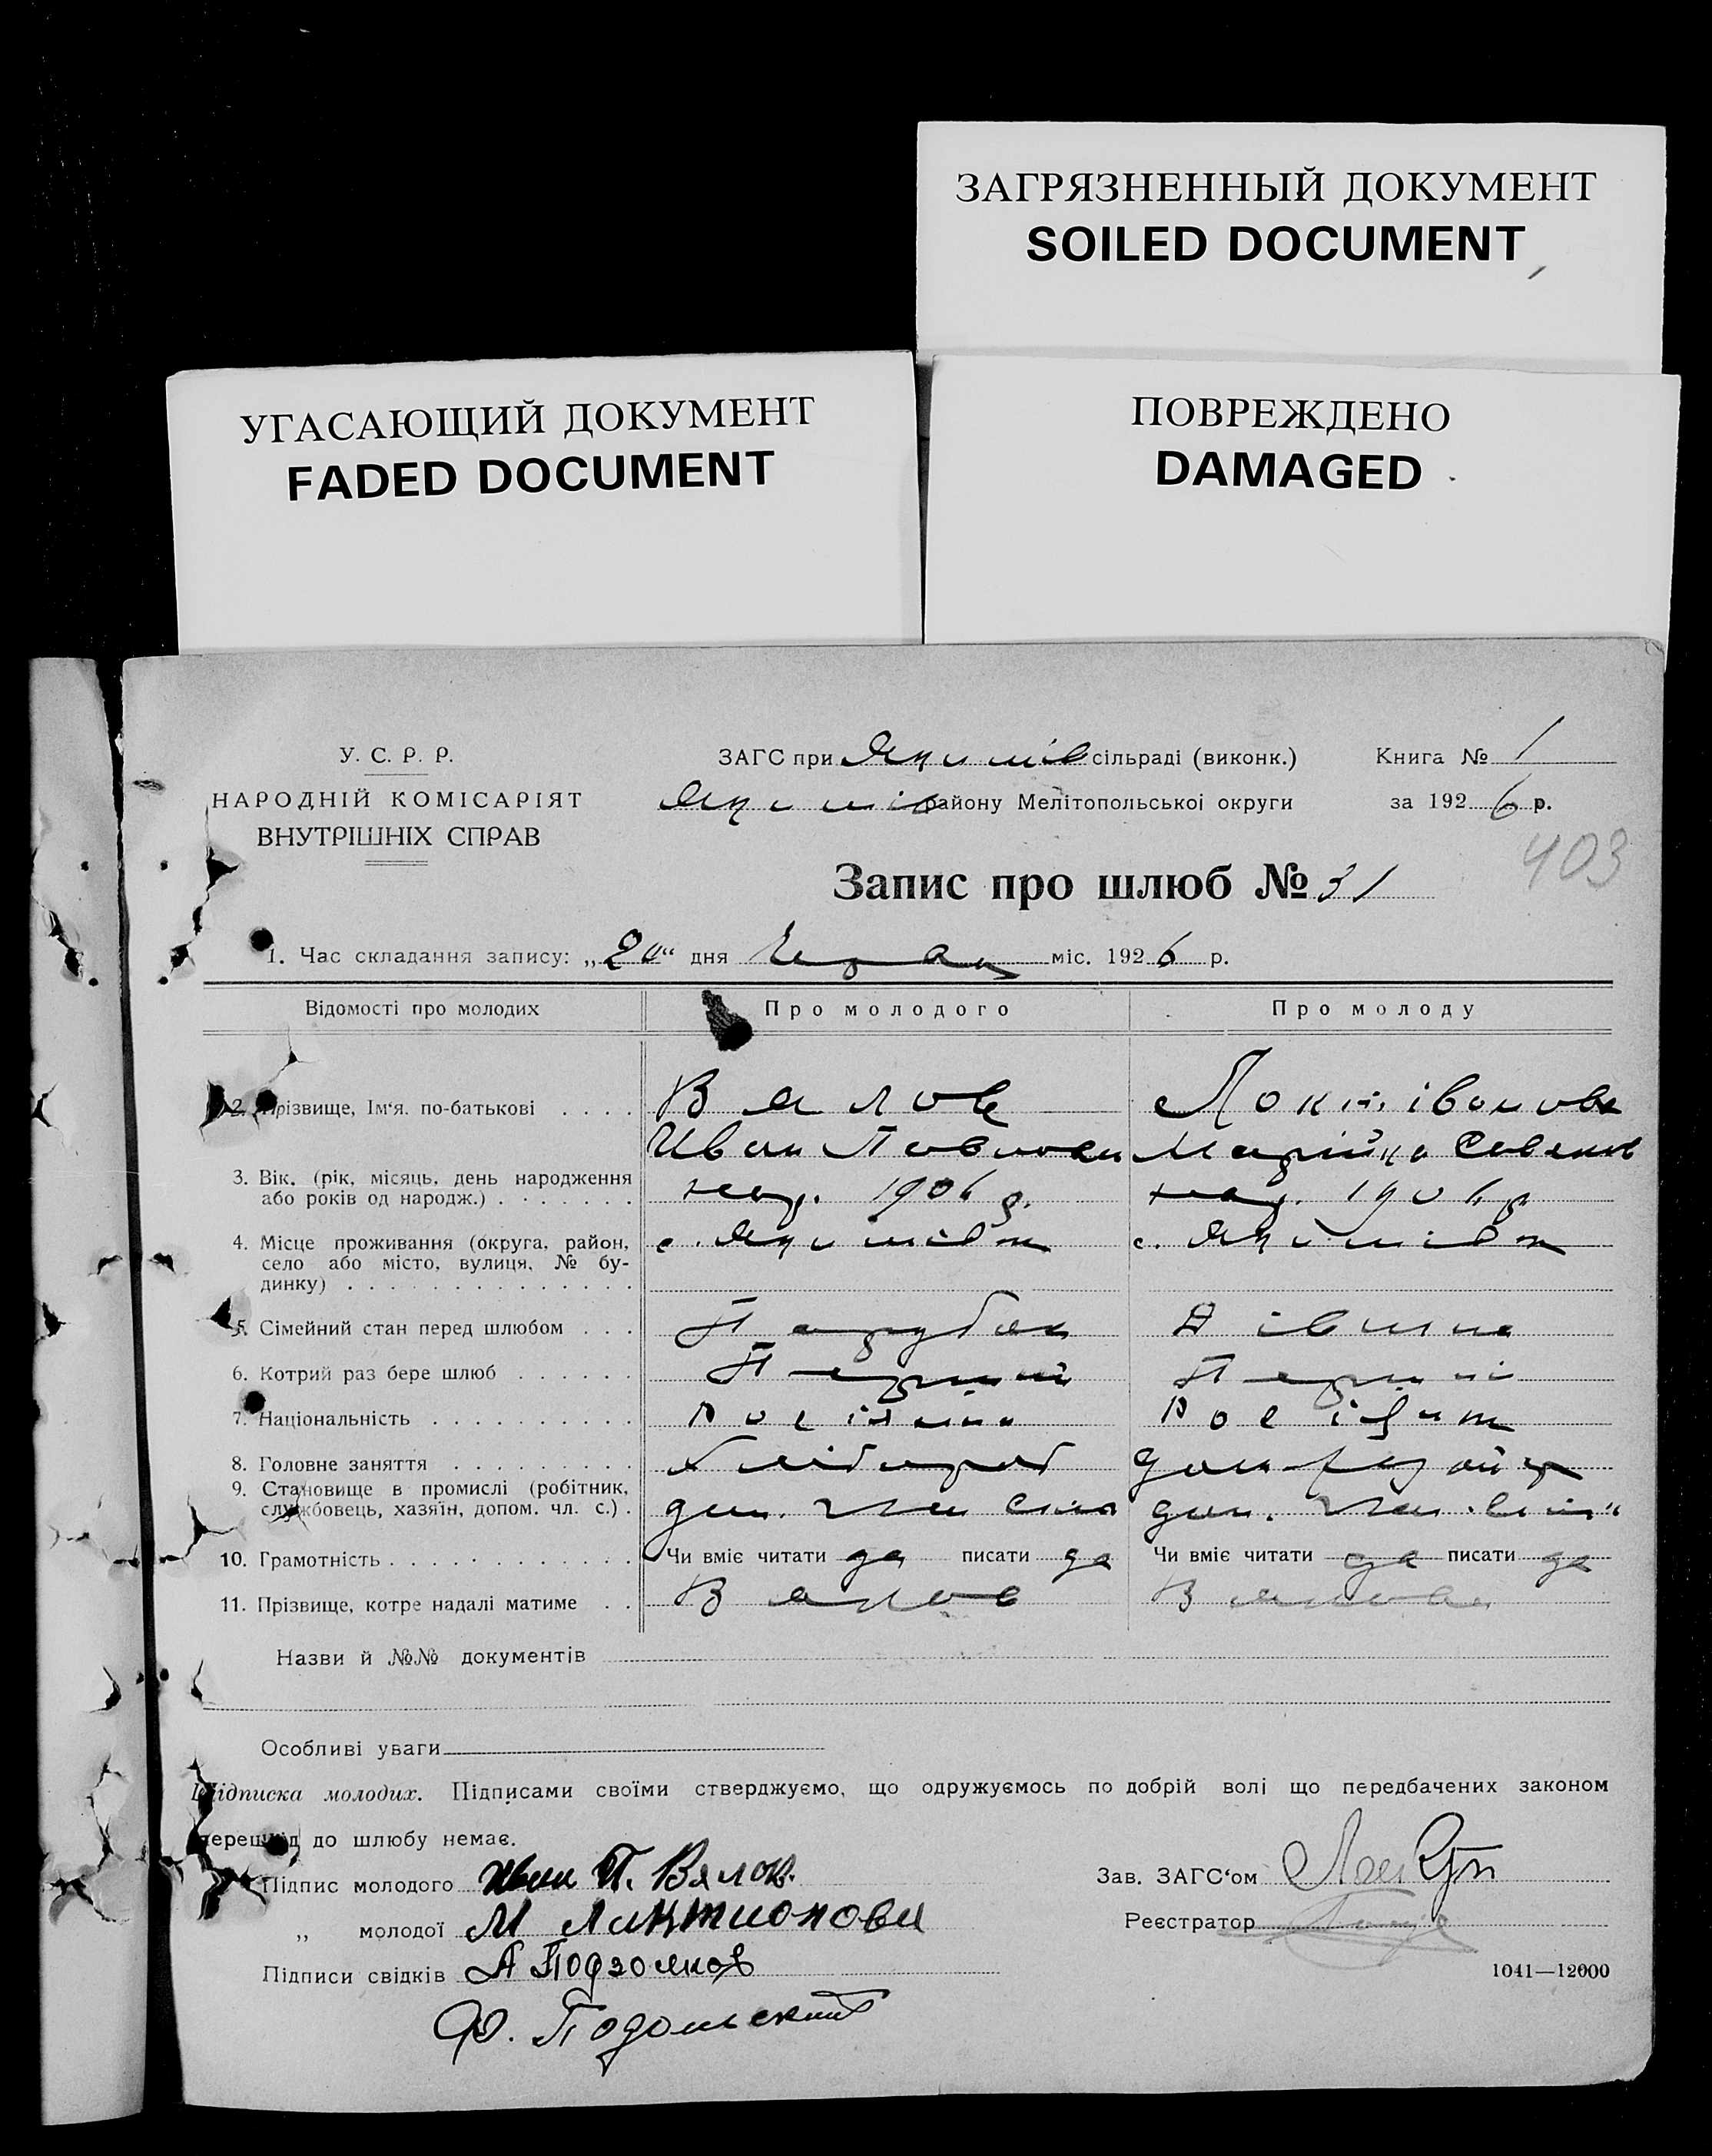 ЗАГРЯЗНЕННЫЙ ДОКУМЕНТ
SOILED DOCUMENT
УГАСАЮЩИЙ ДОКУМЕНТ
FADED DOCUMENT
ПОВРЕЖДЕНО
DAMAGED
У. С. Р. Р.
НАРОДНІЙ КОМІСАРІЯТ
ВНУТРІШНІХ СПРАВ
ЗАГС при Якимів сільраді (виконк.)
Якимів району Мелітопольської округи
Книга № 1
за 1926 р.
403
Запис про шлюб № 31
1. Час складання запису: „20“ дня міс. 1926 р.
Відомості про молодих Про молодого Про молоду
2. Прізвище, Ім'я. по-батькові . . . . Вялов
Иван Павлович Марійка
3. Вік. (рік, місяць, день народження
або років од народж.) . . . . . . нар. 1906 р. нар. 1906 р.
4. Місце проживання (округа, район, с. Якимівка с. Якимівка
село або місто, вулиця, № бу-
динку) . . . . . . . . . . . . . .
5. Сімейний стан перед шлюбом . . . Парубок Дівчина
6. Котрий раз бере шлюб . . . . . . Перший Перший
7. Національність . . . . . . . . . .
8. Головне заняття . . . . . . . . . Хлібороб
9. Становище в промислі (робітник,
службовець, хазяїн, допом. чл. с.) . доп. член сем доп. член
10. Грамотність . . . . . . . . . . . . Чи вміє читати да писати да Чи вміє читати да писати да
11. Прізвище, котре надалі матиме . . Вялов Вялова
Назви й №№ документів
Особливі уваги
Підписка молодих. Підписами своїми стверджуємо, що одружуємось по добрій волі що передбачених законом
перешкід до шлюбу немає.
Підпис молодого Иван П. Вялов.
„ молодої М Лактионова
Підписи свідків А Подзолков
Ф. Подольский
Зав. ЗАГС'ом
Реєстратор
1041—12000